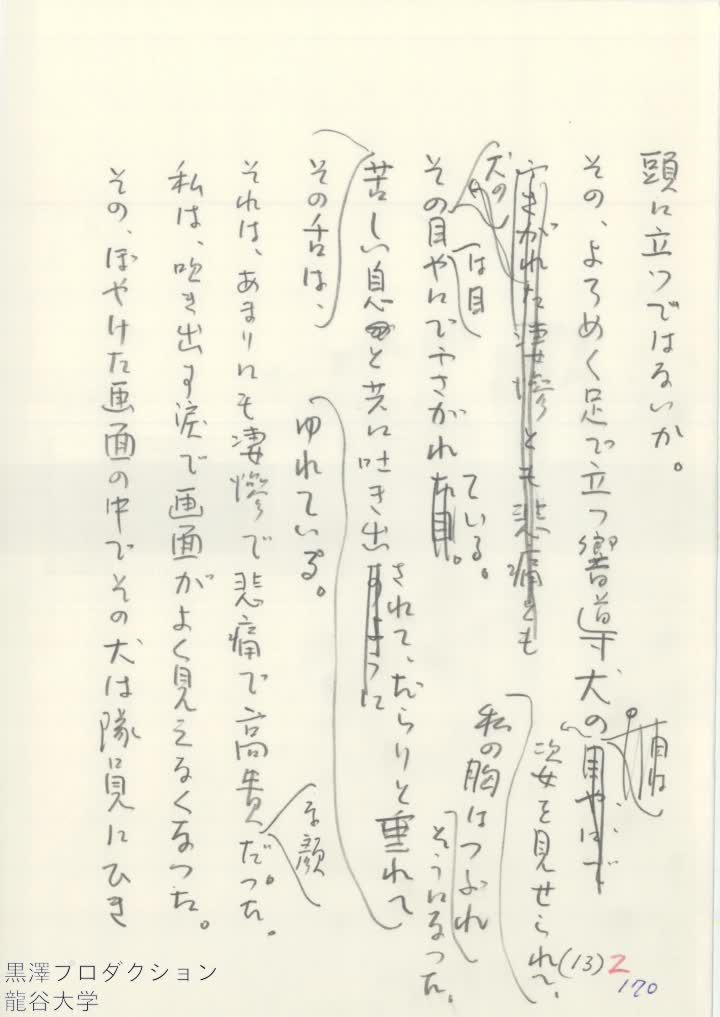 頭に立つではないか。
その、よろめく足で立つ響導犬の
目やにで
姿を見せられて、
私の胸はつぶれ
そうになった。
ふさがれた凄惨とも悲痛とも
犬の
その目やにでふさがれ
は目
ている。
た目。
苦しい息と共に吐き出
すように
されて、だらりと垂れて
その舌は、
ゆれている。
それは、あまりにも凄惨で悲痛で高貴だった。
な顔
私は、吹き出す涙で画面がよく見えなくなった。
その、ぼやけた画面の中でその犬は隊員にひき
(13) 2
170
黒澤プロダクション
龍谷大学